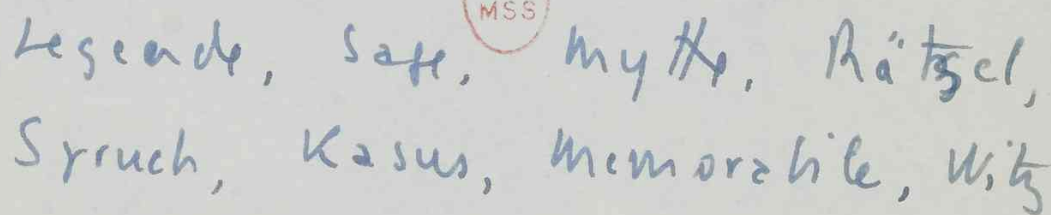 MSS
Legende, Sage, Mythe, Rätzel,
Spruch, Kasus, Memorabile, Witz